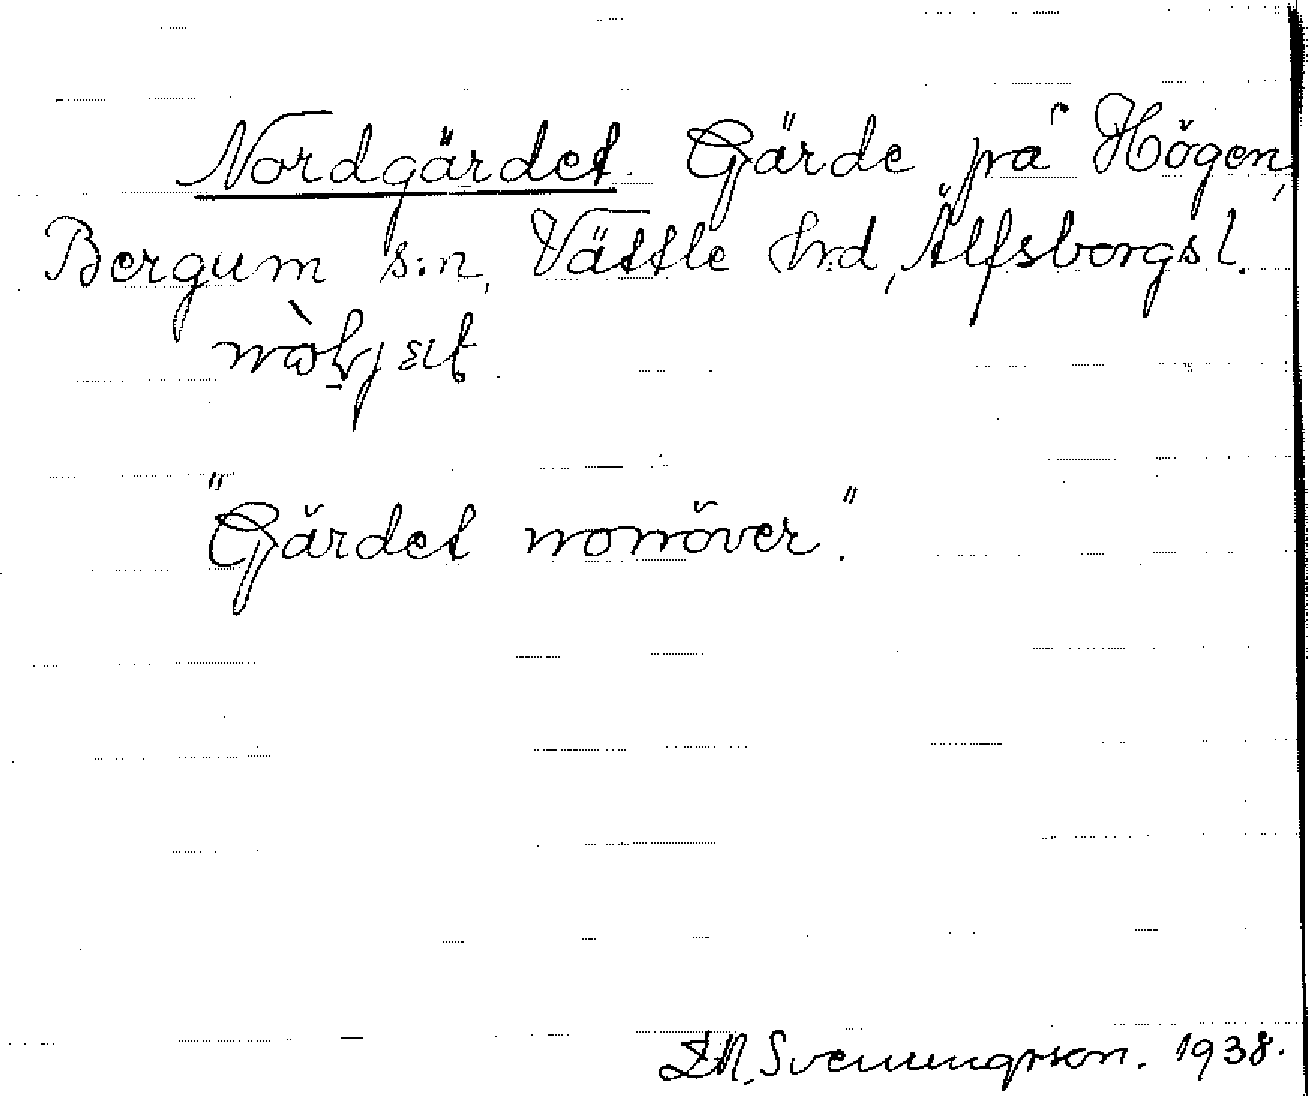 Nordgärdet. Gärde på Högen,
Bergum s:n, Vättle hrd, Älfsborgs l.
"Gärdet norröver."
Svenungsson. 1938.